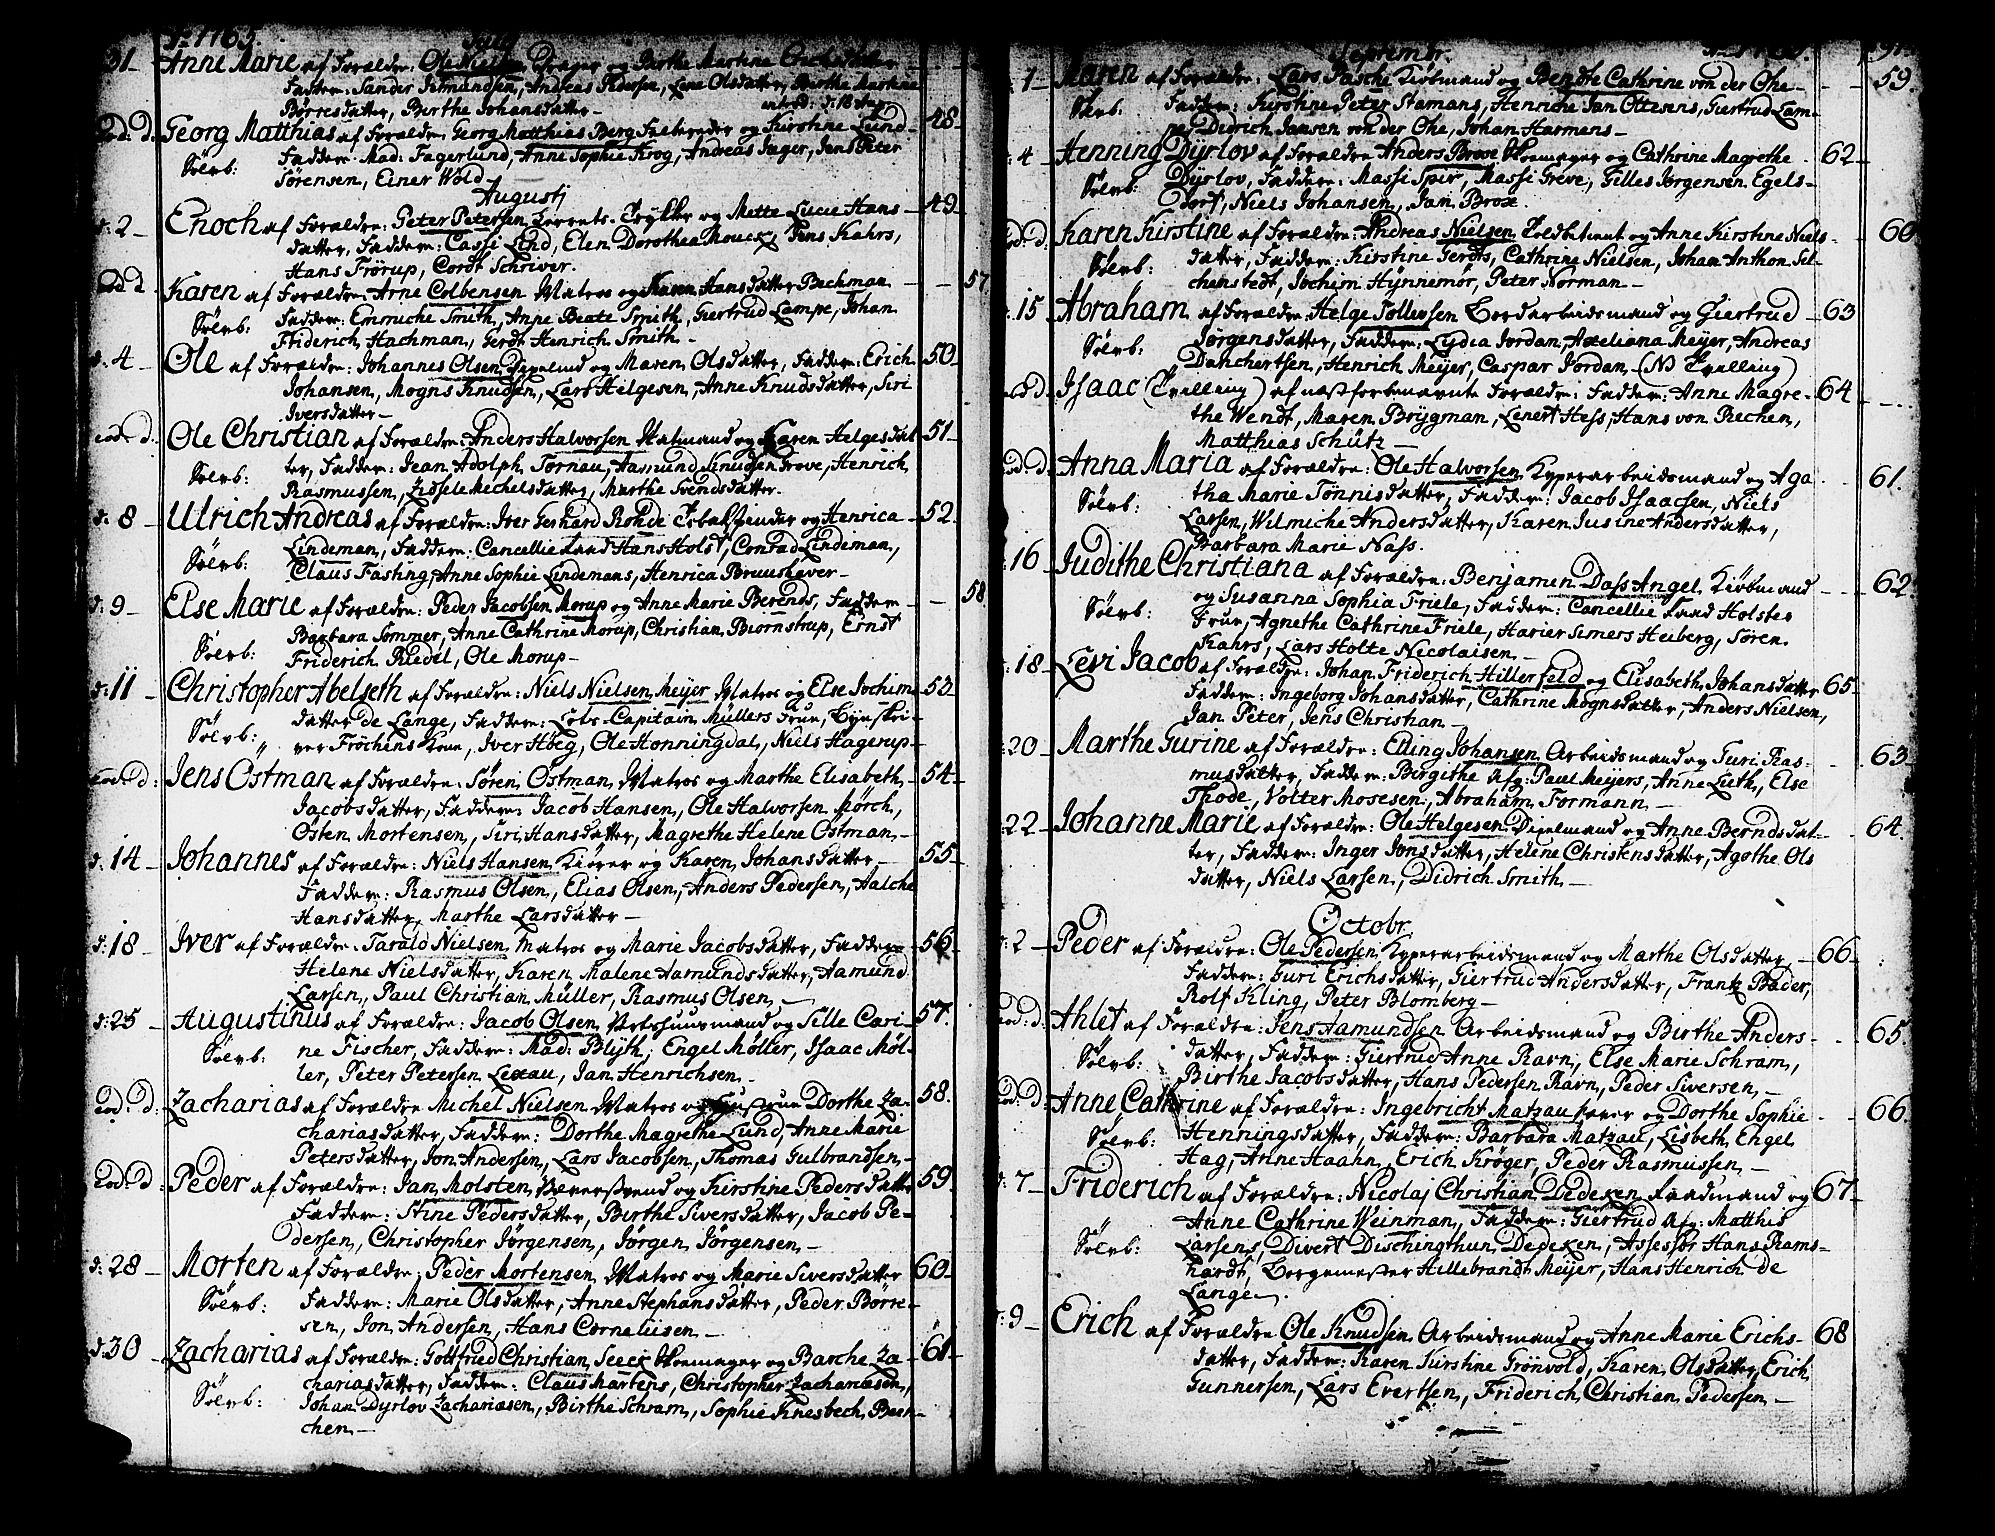 Ao 1765. July
31 Anne Marie af Forældre. Ole Nielsen Drager og Birthe Martine
Faddere: Sander Amundsen, Andreas Pedersen, Lene Olsdatter, Birthe Martine
Børresdatter, Birthe Johansdatter
Eod: d. Georg Matthias af Forældre. Georg Matthias Berg og Kirstine Lund 48
Sölvb: Faddere: Mad: Fagerlund, Anne Sophie Krog, Andreas Jæger, Jens Peter
Sørensen, Einer Wold
Augustj
d: 2 Enoch af Forældre: Peter Petersen Trykker og Mette Lucie Hans 49
datter, Faddere: Cassi Lind, Elen Dorothea Mouck, Jens Kahrs,
Hans Frörup, Cordt Schriver.
Eod d Karen af Forældre. Arne Colbensen Matros og Karen Hansdatter Bechman 57
Sölvb: Faddere: Emmiche Smith, Anne Beate Smith, Giertrud Lampe, Johan
Friderich Hachman, Gerdt Henrich Smith
d: 4 Ole af Forældre: Johannes Olsen og Maren Olsdatter, Faddere: Erich 50
Johansen, Mogns Knudsen, Lars Helgesen, Anne Knudsdatter, Siri
Iversdatter
eod: d. Ole Christian af Forældre: Anders Halvorssen og Karen Helgesdat 51
Sölvb: ter, Faddere: Jean Adolph Tornau, Aamund Knudsen Grove, Henrich
Rasmussen, Zidsele Michelsdatter, Marthe Svendsdatter.
d: 8 Ulrich Andreas af Forældre: Iver Gerhard Rohde og Henrica 52
Sölvb: Lindeman, Faddere: Cancellie Raad Hans Holst, Conrad Lindeman,
Claus Fasting, Anne Sophie Lindemans, Henrica Bruushaver
d: 9 Else Marie af Forældre: Peder Jacobsen Morup og Anne Marie Berends, Faddere 58
Sölvb: Barbara Sommer, Anne Cathrine Morup, Christian Biornstrup, Ernst
Friderich Riedel, Ole Morup
d: 11 Christopher Abelseth af Forældre: Niels Nielsen Meyer Matros og Else Jochims 53
Sölvb: datter de Lange, Faddere: Lots-Capitain Müllers Frue, Byeskri-
ver Fröchens Kone, Iver Höeg, Ole Honningdal, Niels Hagerup
eod: d: Jens Östman af Forældre: Søren Östman Matros og Marthe Elisabeth 54
Jacobsdatter, Faddere: Jacob Hansen, Ole Halvorsen Mörch,
Osten Mortensen, Siri Hansdatter, Magrethe Helene Östman
d: 14 Johannes af Forældre: Niels Hansen Kiörer og Karen Johansdatter 55
Faddere: Rasmus Olsen, Elias Olsen, Anders Pedersen, Aalche
Hansdatter, Marthe Larsdatter
d: 18 Iver af Forældre: Tarald Nielsen Matros og Marie Jacobsdatter, Faddere 56
Helene Nielsdatter, Karen Malene Aamundsdatter, Aamund
Larsen, Paul Christian Müller, Rasmus Olsen
d: 25 Augustinus af Forældre: Jacob Olsen og Sille Cari- 57.
Sölvb: ne Fischer, Faddere: Mad: Blÿth, Engel Møller, Isaac Møl-
ler, Peter Petersen Lixau, Jan Henrichsen
eod: d: Zacharias af Forældre Michel Nielsen Matros og Hustrue Dorthe Za- 58.
chariasdatter, Faddere: Dorthe Magrethe Lund, Anne Marie
Petersdatter, Jon Andersen, Lars Jacobsen, Thomas Gulbrandsen
Eod: d: Peder af Forældre: Jan Molsten og Kirstine Pedersdatter 59
Faddere: Stine Pedersdatter, Birthe Siversdatter, Jacob Pe-
dersen, Christopher Jörgensen, Jörgen Jörgensen
d: 28 Morten af Forældre: Peder Mortensen Matros og Marie Siversdatter 60
Sölvb: Faddere: Marie Olsdatter, Anne Stephansdatter, Peder Børre-
sen, Jon Andersen, Hans Corneliisen
d: 30 Zacharias af Forældre: Gottfried Christian Seeck Skoemager og Barche Za- 61
Sölvb: chariasdatter, Faddere: Claus Martens, Christopher Zachariasen,
Johan Dyrlov Zachariasen, Birthe Schram, Sophie Knesbech Bee-
chen
Septembr. 91
1 Maren af Forældre: Lars Pasche Kiöbmand og Bendte Cathrine von der Ohe 59.
Sölvb: Faddere: Kirstine Peter Stamans, Henriche Jan Ottesens, Giertrud Lam-
pe, Didrich Jansen von der Ohe, Johan Harmens
4 Henning Dÿrlov af Forældre Anders Brose Skoemager og Cathrine Magrethe 62
Sölvb: Dÿrlov, Faddere: Massi Spir, Massi Greve, Gilles Jørgensen Egels-
dorf, Niels Johansen, Jan Brose
eod: d. Karen Kirstine af Forældre: Andreas Nielsen Toldbetient og Anne Kirstine Niels- 60
Sölvb: datter, Faddere: Kirstine Gerdts, Cathrine Nielsen, Johan Anthon Sel-
chenstedt, Jochim Hÿnnemör, Peter Norman
15 Abraham af Forældre: Helge Tollevsen Bordarbeidsmand og Giertrud 63
Sölvb: Jørgensdatter, Faddere: Lydia Jordan, Axeliana Meÿer, Andreas
Danchertsen, Henrich Meÿer, Caspar Jordan (NB Tvilling)
eod d: Isaac (Tvilling) af næstforbenævnte Forældre: Faddere: Anne Magre- 64
the Wendt, Maren Brÿgman, Lenert Hess, Hans von Rechen,
Matthias Schütz
eod: d: Anna Maria af Forældre: Ole Halvorsen Kyperarbeidsmand og Aga 61.
Sölvb: tha Marie Tönnisdatter, Faddere: Jacob Isaacsen, Niels
Larsen, Wilmiche Andersdatter, Karen Jusine Andersdatter,
Barbara Marie Nass.
16 Judithe Christiana af Forældre: Benjamin Dass Angel Kiöbmand 62
Sölvb: og Susanna Sophia Friele, Faddere: Cancellie Raad Holstes
Frue, Agnethe Cathrine Friele, Harier Simers Heiberg, Søren
Kahrs, Lars Holte Nicolaisen
18 Levi Jacob af Forældre: Johan Friderich Hillerfeld og Elisabeth Johansdatter 65
Faddere: Ingeborg Johansdatter, Cathrine Mognsdatter, Anders Nielsen,
Jan Peter, Jens Christian
20 Marthe Gurine af Forældre: Elling Johansen Arbeidsmand og Turi Ras- 63
musdatter, Faddere: Birgithe Afg: Paul Meyers, Anne Luth, Else
Thode, Volter Mosesen, Abraham Formann
22 Johanne Marie af Forældre: Ole Helgesen og Anne Berndsdat- 64.
ter, Faddere: Inger Jonsdatter, Helene Christensdatter, Agothe Ols
datter, Niels Larsen, Didrich Smith
Octobr.
2 Peder af Forældre: Ole Pedersen Kyperarbeidsmand og Marthe Olsdatter 66
Faddere: Turi Erichsdatter, Giertrud Andersdatter, Frantz Bader,
Rolf Kling, Peter Blomberg
eod: d: Ahlet af Forældre: Jens Aamundsen Arbeidsmand og Birthe Anders- 65.
Sölvb: datter, Faddere: Giertrud Anne Ravn, Else Marie Schram,
Birthe Jacobsdatter, Hans Pedersen Ravn, Peder Siversen
eod: d: Anne Cathrine af Forældre: Ingebricht Matzau og Dorthe Sophie 66
Sölvb: Henningsdatter, Faddere: Barbara Matzau, Lisbeth Engel
Hag, Anne Haahn, Erich Krøger, Peder Rasmussen
7 Friderich af Forældre: Nicolaj Christian Dedeken Raadmand og 67
Sölvb: Anne Cathrine Weinman, Faddere: Giertrud Afg: Matthis
Larsens, Divert Dischingthun Dedeken, Assessor Hans Rams-
hardt, Borgemester Hillebrandt Meÿer, Hans Henrich de
Lange.
9 Erich af Forældre Ole Knudsen Arbeidsmand og Anne Marie Erichs- 68
datter, Faddere: Karen Kirstine Grönvold, Karen Olsdatter, Erich
Gunnersen, Lars Evertsen, Friderich Christian Pedersen